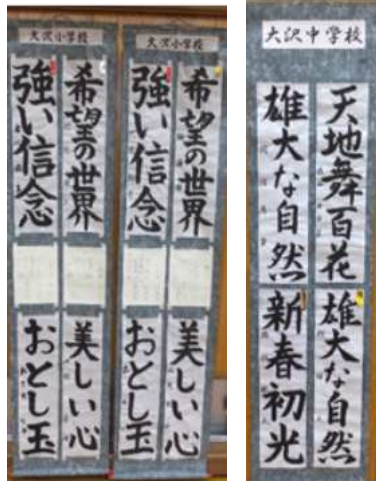 大沢小学校
希望の世界
強い信念
美しい心
おとし玉
大沢小学校
希望の世界
強い信念
美しい心
おとし玉
大沢中学校
天地舞百花
雄大な自然
雄大な自然
新春初光